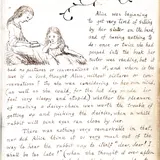 Alice was beginning to
get very tired of sitting
by her sister on the bank,
and of having nothing to
do: once or twice she had
the book her
sister was reading, but it
had no pictures or conversations in it, and where is the
use of a book, thought Alice, without pictures or con-
versations? So she was considering in her own mind,
(as well as she could, for the hot day made her
feel very sleepy and stupid,) whether the pleasure
of making a daisy-chain was worth the trouble of
getting up and picking the daisies, when a white
rabbit with pink eyes ran close by her.
There was nothing very remarkable in that,
nor did Alice think it so very much out of the
way to hear the rabbit say to itself "dear, dear! I
shall be too late!" (when she thought it over